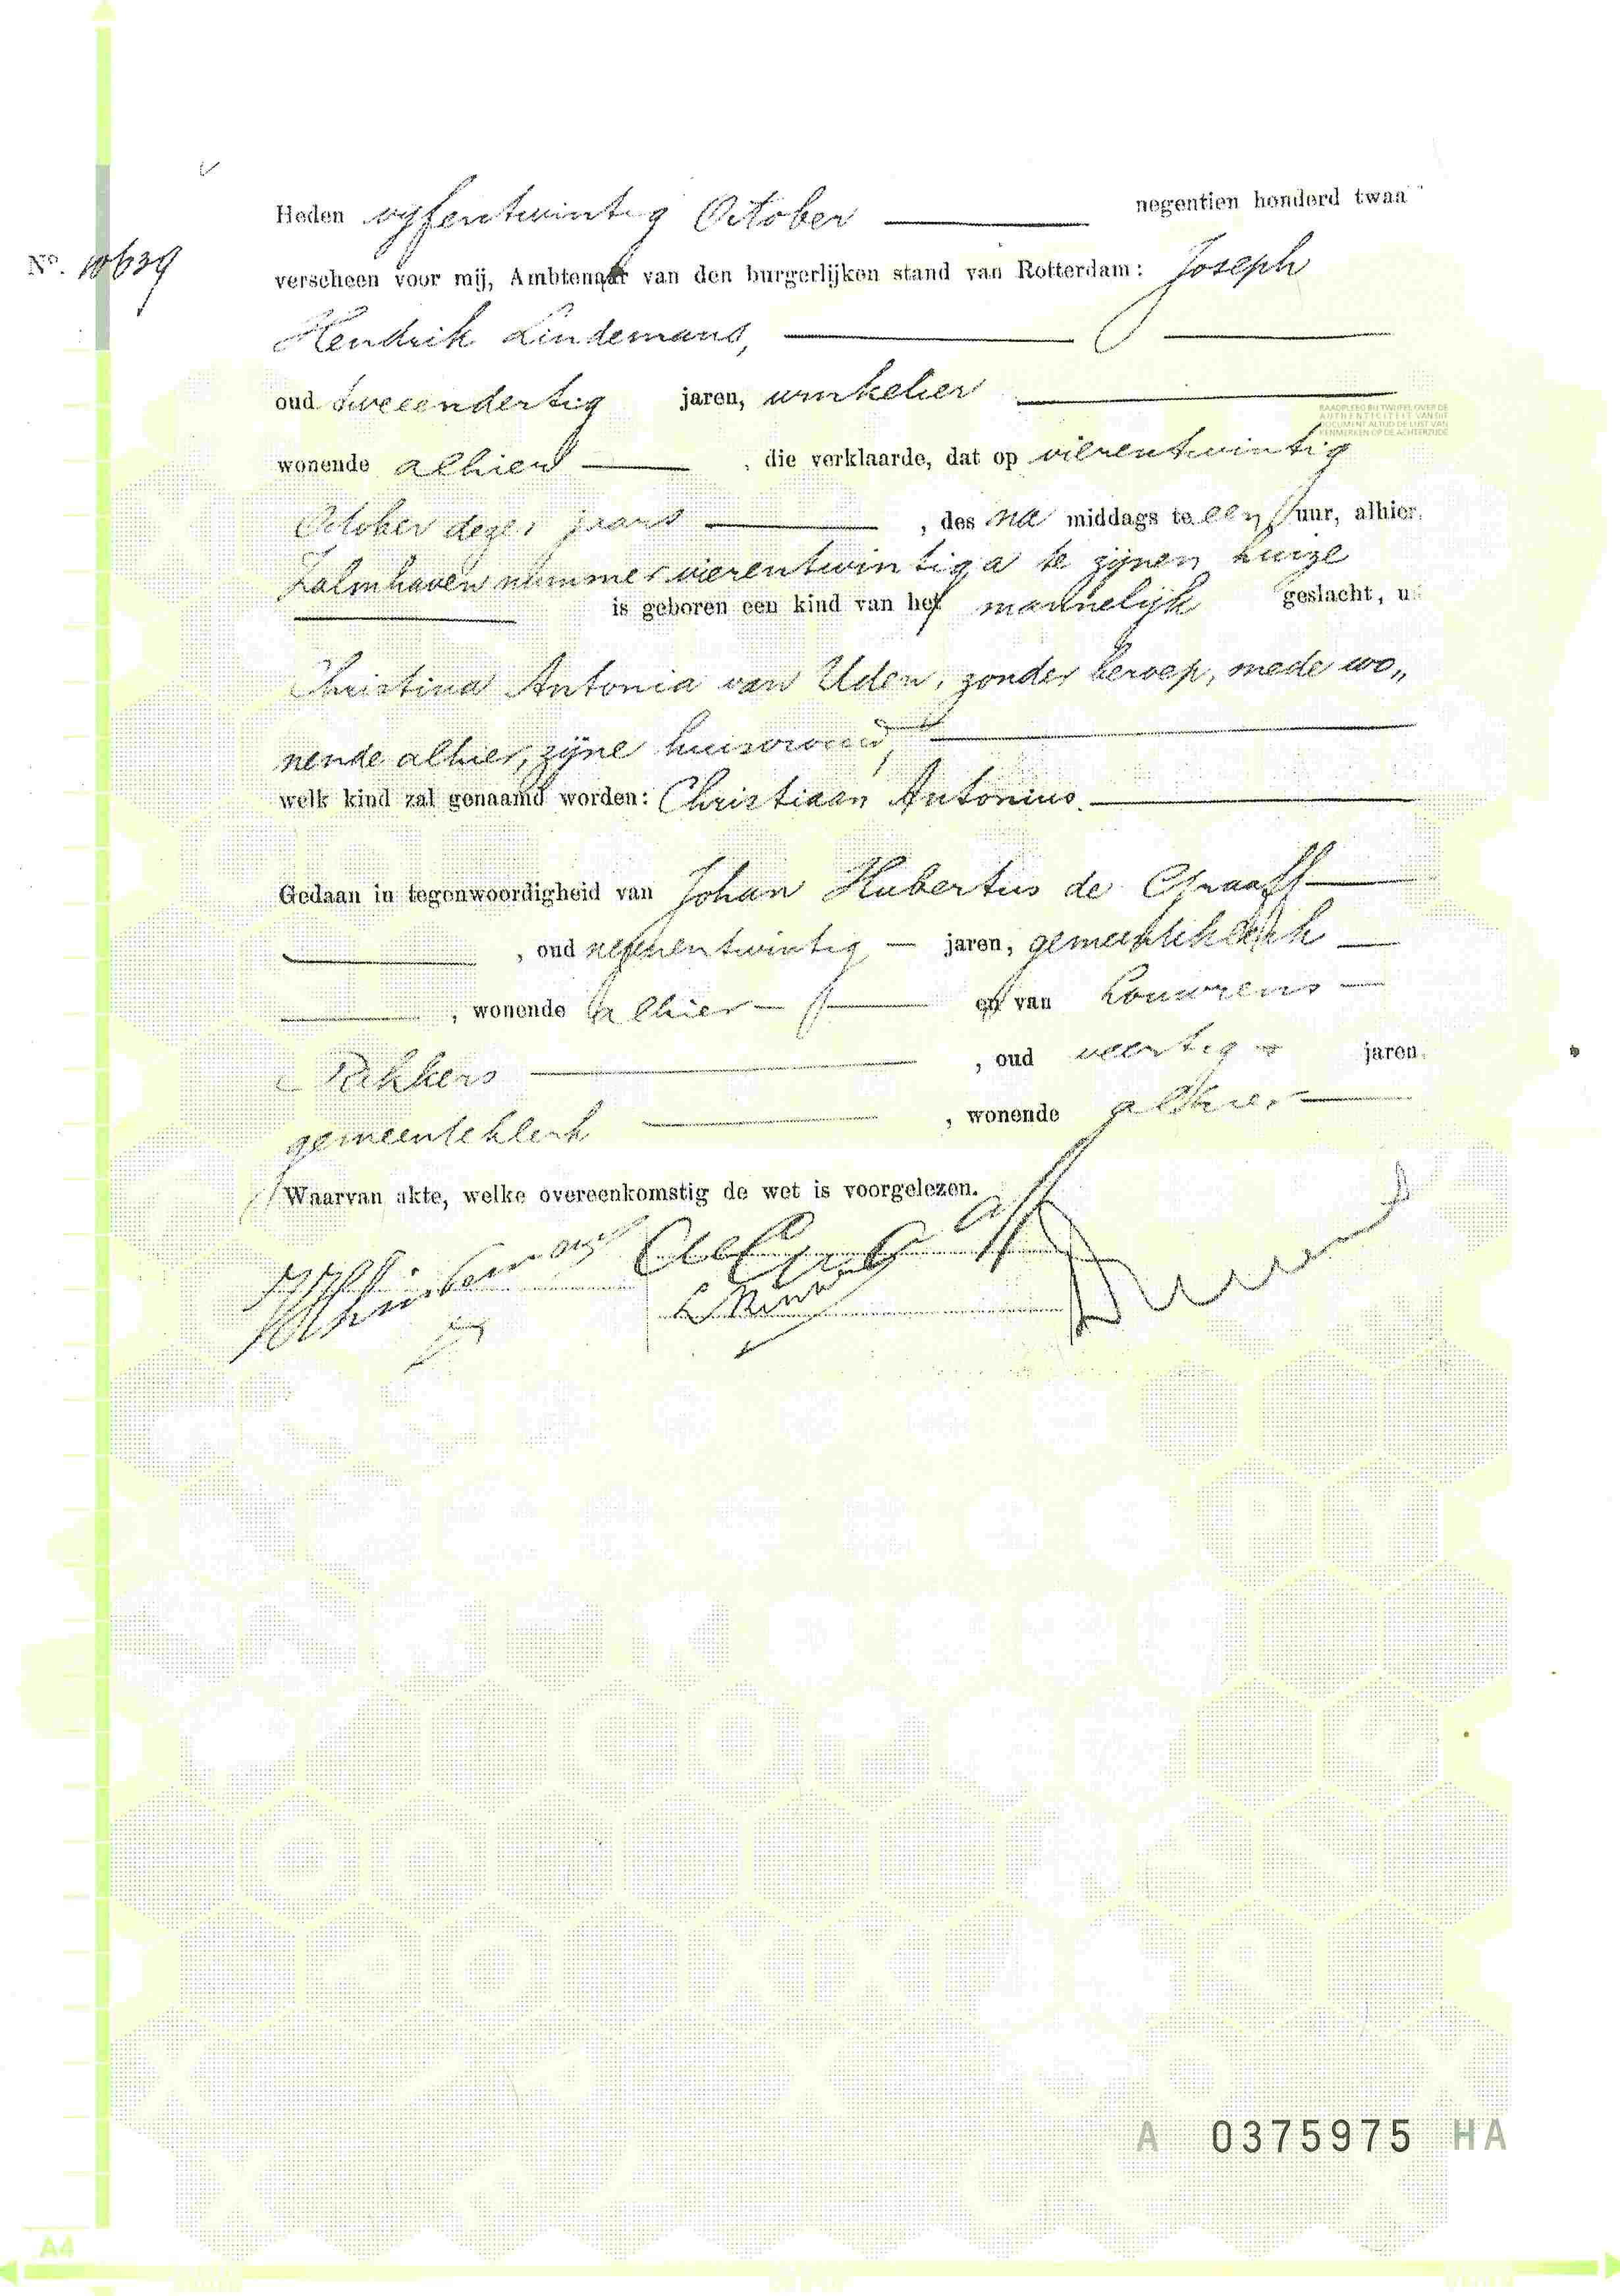 Heden vijfentwintig October negentien honderd twaa
No. 10639
verscheen voor mij, Ambtenaar van den burgerlijken stand van Rotterdam: Joseph
Hendrik Lindemans,
oud tweeendertig jaren, winkelier
RAADPLEEG BIJ TWIJFEL OVER DE
AUTHENTICITEIT VAN DIT
DOCUMENT ALTIJD DE LIJST VAN
KENMERKEN OP DE ACHTERZIJDE
wonende alhier, die verklaarde, dat op vierentwintig
October dezes jaars, des na middags te een uur, alhier,
Zalmhaven nummer vierentwintig a te zijnen huize
is geboren een kind van het mannelijk geslacht, u
Christina Antonia van Uden, zonder beroep, mede wo„
nende alhier, zijne huisvrouw,
welk kind zal genaamd worden: Christiaan Antonius.
Gedaan in tegenwoordigheid van Johan Hubertus de Graaff
, oud negenentwintig jaren, gemeenteklerk
, wonende alhier en van Louwrens
, oud veertig jaren,
gemeenteklerk, wonende alhier
Waarvan akte, welke overeenkomstig de wet is voorgelezen.
A 0375975 HA
A4